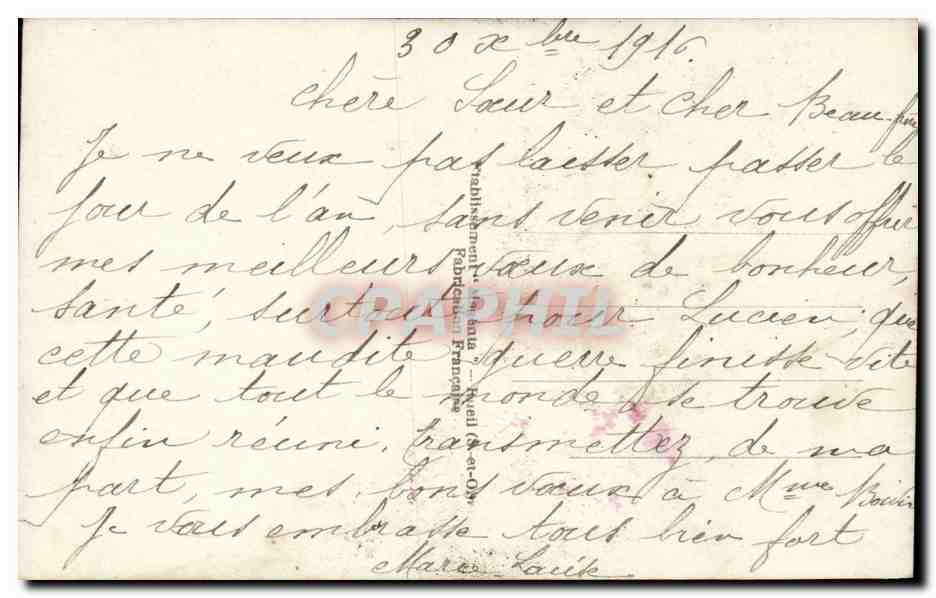 30 Xbre 1916.
Chère Sœur et cher Beau-frère
Je ne veux pas laisser passer le
jour de l'an, sans venir vous offrir
mes meilleurs vœux de bonheur,
santé, surtout pour Lucien, que
cette maudite guerre finisse vite
et que tout le monde se trouve
enfin réuni. Transmettez, de ma
part, mes bons vœux à Mme
Je vous embrasse tous bien fort
Marie-Louise
Etablissement - Rueil (S.-et-O.)
Fabrication Française
CPAPHIL